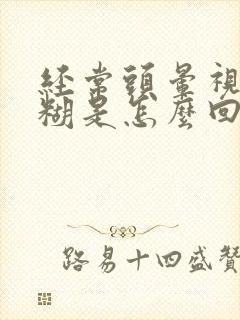 經常頭暈視
糊是怎麼回
路易十四盛贊